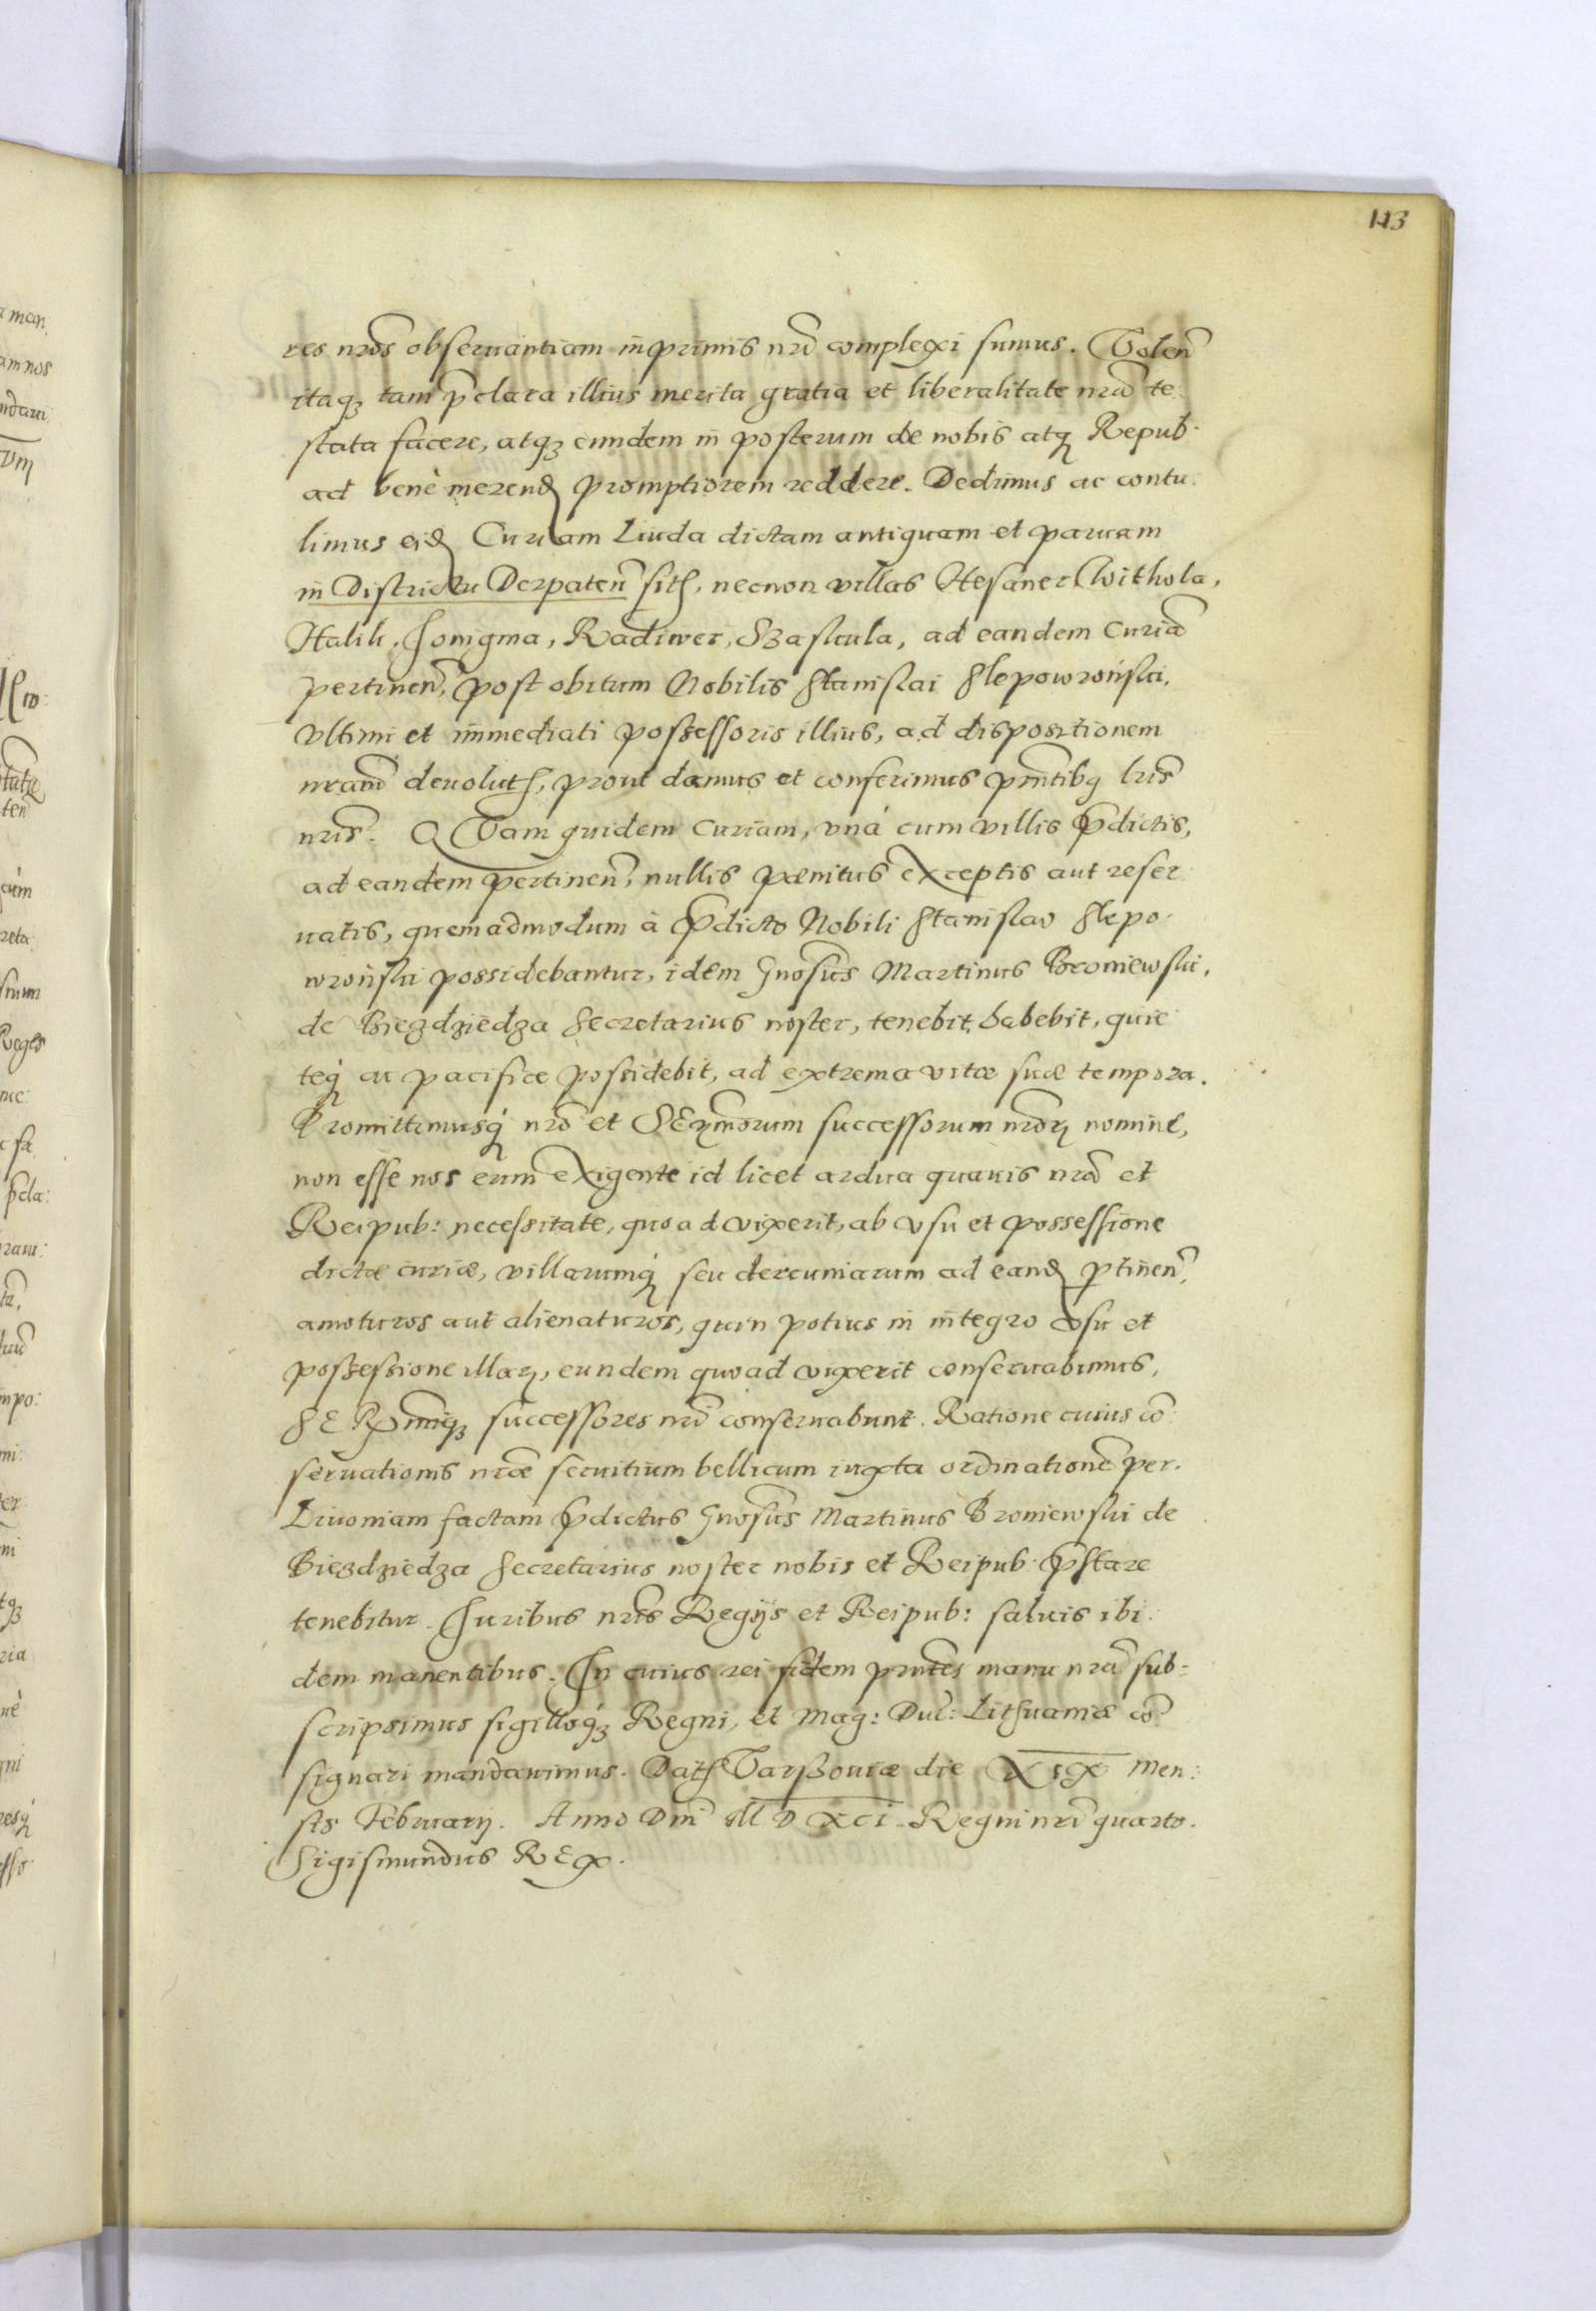 113
res nr̃os obseruantiam inprimis nr̃i complexi sumus. Volen̄
itaqȝ tam p̄clara illius merita gratia et liberalitate nrã te
stata facere, atqȝ eundem in posterum de nobis atqȝ Repub.
ad benè merend̄ promptiorem reddere. Dedimus ac contu:
limus eid̄ Curiam Liuda dictam antiquam et paruam
in Districtu Derpaten̄ sit̄, necnon villas Hesaner Withola,
Halik, Jonigma, Radiwer, Szaskula, ad eandem Curiã
pertinen̄, post obitum Nobilis Stanislai Slepowroński,
vltimi et immediati possessoris illius, ad dispositionem
nram̃ deuolut̄, prout damus et conferimus pñtibȝ lr̃is
nr̃is. QVam quidem Curiam, vnà cum villis p̄dictis,
ad eandem pertinen̄, nullis pænitus exceptis aut reser
uatis, quemadmodum à p̄dicto Nobili Stanislao Slepo
wroński possidebantur, idem Gnosũs Martinus Broniewski,
de Biezdziedza Secretarius noster, tenebit, habebit, quie
teqȝ ac pacifice possidebit, ad extrema vitæ suæ tempora.
Promittimusqȝ nrõ et SErm̃orum successorum nrõrȝ nomine,
non esse nos eum exigente id licet ardua quauis nrã et
Reipub: necessitate, quoad vixerit, ab vsu et possessione
dictæ curiæ, villarumqȝ seu dercuniarum ad eand̄ p̄tinen̄,
amoturos aut alienaturos, quin potius in integro vsu et
possessione illarȝ, eundem quoad vixerit conseruabimus,
SERm̃iqȝ successores nr̃i conseruabunt. Ratione cuius cõ
seruationis nrẽ seruitium bellicum iuxta ordinationẽ per
Liuoniam factam p̄dictus Gnosũs Martinus Broniewski de
Biezdziedza Secretarius noster nobis et Reipub. p̄stare
tenebitur. Juribus nr̃is Regijs et Reipub: saluis ibi:
dem manentibus. In cuius rei fidem pñtes manu nrã sub=
scripsimus sigilloqȝ Regni, et Mag: Duc̃: Lithuaniæ cõ
signari mandauimus. Dat̄ Varßouiæ die XIX Men:
sis Februarij. Anno Dñi MDXCI. Regni nr̃i quarto.
Sigismundus REx.